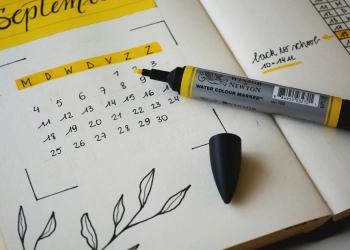 September
M D W D V Z Z
1 2 3
4 5 6 7 8 9
11 12 13 14 15 16
18 19 20 21 22 23 24
25 26 27 28 29 30
back to school
10-14u
WINSOR
& NEWTON
WATER COLOUR MARKER